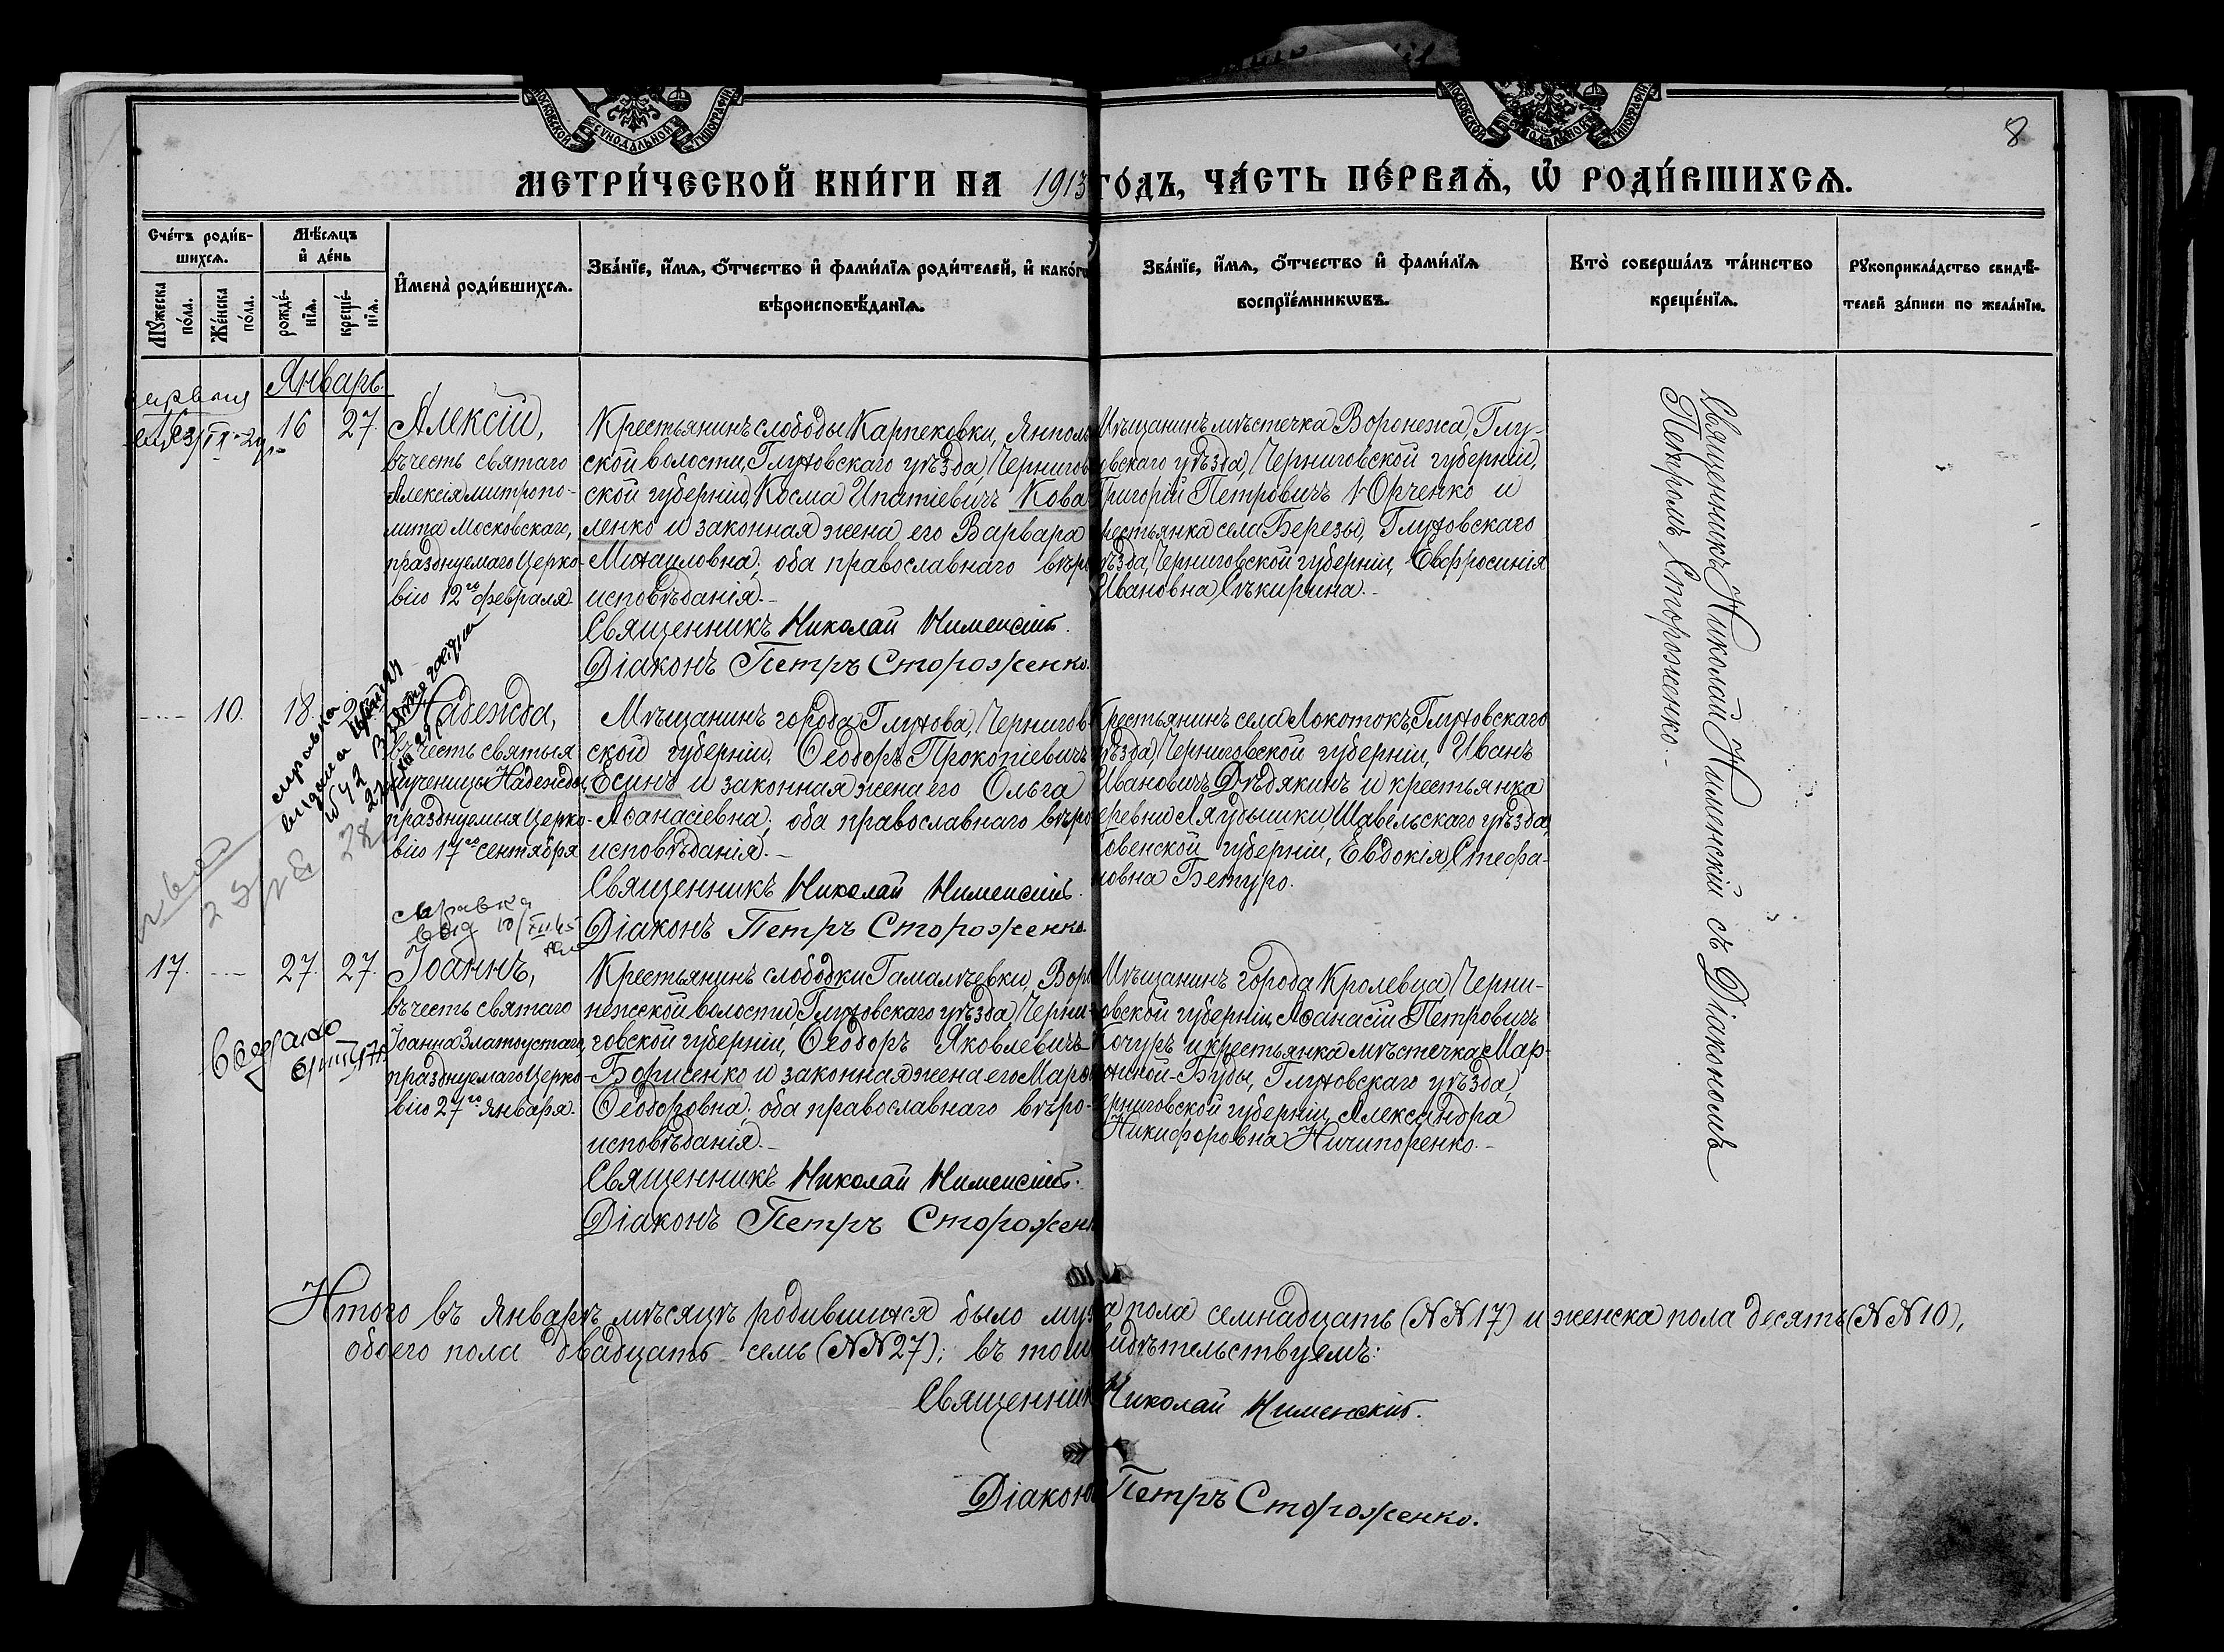 МОСКОВСКОЙ СѴНОДАЛЬНОЙ ТИПОГРАФИИ
МОСКОВСКОЙ СѴНОДАЛЬНОЙ ТИПОГРАФИИ
8
МЕТРИ́ЧЕСКОЙ КНИ́ГИ НА 1913 ГО́ДЪ, ЧА́СТЬ ПЕ́РВАѦ, Ѡ҆ РОДИ́ВШИХСѦ.
Сче́тъ роди́в-
шихсѧ.
Мꙋ́жеска по́ла.
Же́нска по́ла.
Мѣ́сѧцъ и҆ де́нь
рожде́-нїѧ.
креще́-нїѧ.
И҆мена̀ роди́вшихсѧ.
Зва́нїе, и҆́мѧ, ѻ҆́тчество и҆ фами́лїѧ роди́телей, и҆ како́гѡ
вѣроисповѣ́данїѧ.
Зва́нїе, и҆́мѧ, ѻ҆́тчество и҆ фами́лїѧ
воспрїе́мникѡвъ.
Кто̀ соверша́лъ та́инство
креще́нїѧ.
Рꙋкоприкла́дство свидѣ́-
телей за́писи по жела́нїю.
Январь.
16 27. Алексій,
въ честь святаго
Алексія митропо-
лита Московскаго,
празднуемаго Церко-
вію 12го февраля.
Крестьянинъ слободы Карпековки, Янполь
ской волости, Глуховскаго уѣзда, Чернигов
ской губерніи, Косма Ипатіевичъ Кова
ленко и законная жена его Варвара
Михаиловна; оба православнаго вѣро
исповѣданія.-
Священникъ Николай Нименскій.
Діаконъ Петръ Стороженко.
Мѣщанинъ мѣстечка Воронежа, Глу-
овскаго уѣзда, Черниговской губерніи,
Григорій Петровичъ Юрченко и
рестьянка села Березы, Глуховскаго
ѣзда, Черниговской губерніи, Евфросинія
Ивановна Сѣкирина.-
Священникъ Николай Нименскій съ Діакономъ
Петромъ Стороженко.-
10. 18. Надежда,
въ честь святыя
мученицы Надежды,
празднуемыя Церко-
вію 17го сентября
Мѣщанинъ города Глухова, Чернигов
ской губерніи, Ѳеодоръ Прокопіевичъ
Есинъ и законная жена его Ольга
Аѳанасіевна; оба православнаго вѣро
исповѣданія.-
Священникъ Николай Нименскій.
Діаконъ Петръ Стороженко.
Крестьянинъ села Локотокъ, Глуховскаго
уѣзда, Черниговской губерніи, Иванъ
Ивановичъ Дѣдякинъ и крестьянка
еревни Ляудышки, Шавельскаго уѣзда,
Ковенской губерніи, Евдокія Стефа-
новна Бетуро.
справка
17. 27. 27. Іоаннъ,
въ честь святаго
Іоанна Златоустаго,
празднуемаго Церко-
вію 27го января.
Крестьянинъ слободки Гамалѣевки, Воро
нежской волости, Глуховскаго уѣзда, Черни-
говской губерніи, Ѳеодоръ Яковлевичъ
Борисенко и законная жена его Маро
Ѳеодоровна; оба православнаго вѣро-
исповѣданія.-
Священникъ Николай Нименскій.
Діаконъ Петръ Стороженк
Мѣщанинъ города Кролевца, Черни-
овской губерніи, Аѳанасій Петровичъ
Кочуръ и крестьянка мѣстечка Мар-
чихиной-Буды, Глуховскаго уѣзда,
ерниговской губерніи, Александра
Никифоровна Ничипоренко.-
Итого въ январѣ мѣсяцѣ родившихся было муж а пола семнадцать (NN 17) и женска пола десять (NN 10),
обоего пола двадцать семь (NN 27); въ томъ видѣтельствуемъ:
Священник Николай Нименскій.
Діаконъ Петръ Стороженко.